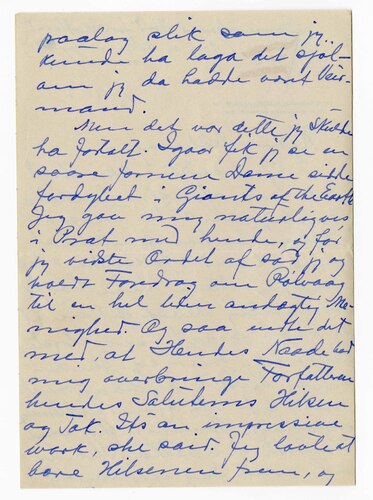 paalag slik som jeg
kunde ha laga det sjøl
om jeg da hadde vært Veir-
mand.
Men det var dette jeg skulde
ha fortalt. Igaar fik jeg se en
saare fornem Dame sidde
fordypet i Giants of the Earth
Jeg gav mig naturligvis
i Prat med hende, og før
jeg vidste Ordet af sad jeg og
holdt Foredrag om Rølvaag
til en hel liten andægtig Mæ-
nighed. Og saa endte det
med, at Hendes Naade bad
mig overbringe Forfatteren
hendes Hilsen
og Tak. It's an impressive
work, she said. Jeg lovet at
bære Hilsenen frem, og